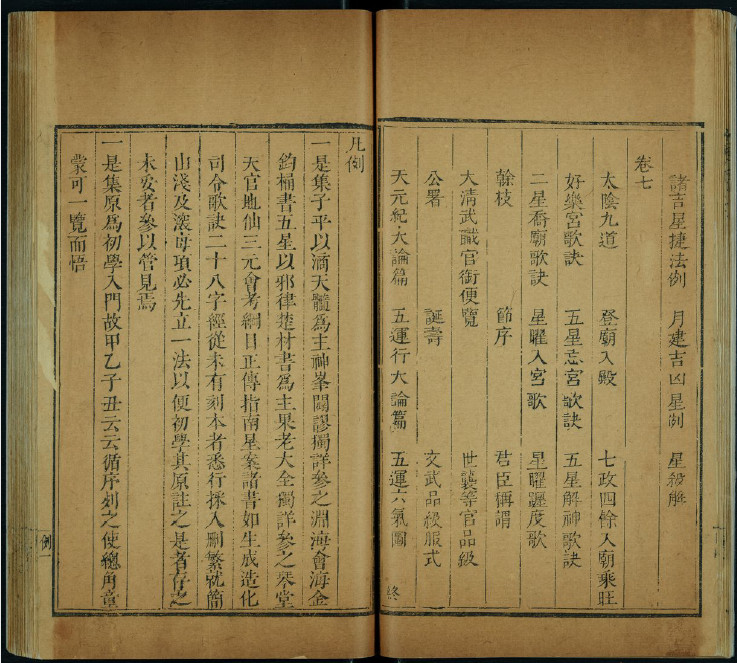 諸吉星捷法例　月建吉凶星例　星級解
卷七
太陰九道　登廟入殿　七政四餘入廟乘旺
好樂宮歌訣　五星忌宮歌訣　五星解神歌訣
二星喬廟歌訣　星曜入宮歌　星曜躔度歌
幹枝　節序　君臣稱謂
大清武職官銜便覽　世襲等官品級
公署　誕壽　文武品級服式
天元紀大論篇　五運行大論篇　五運六氣圖　終
凡例
一是集子平以滴天髓爲主神峯闢謬獨詳參之淵海會海金
鈞桶書五星以邪律楚材書爲主果老大全獨詳參之琴堂
天官地仙三元會考綱目正傳指南星案諸書如生成造化
司令歌訣二十八字經從未有刻本者悉行採入刪繁就簡
由淺及深每項必先立一法以便初學其原註之是者存之
未妥者參以管見焉
一是集原爲初學入門故甲乙子丑云云循序列之使總角童
蒙可一覽而悟
例一